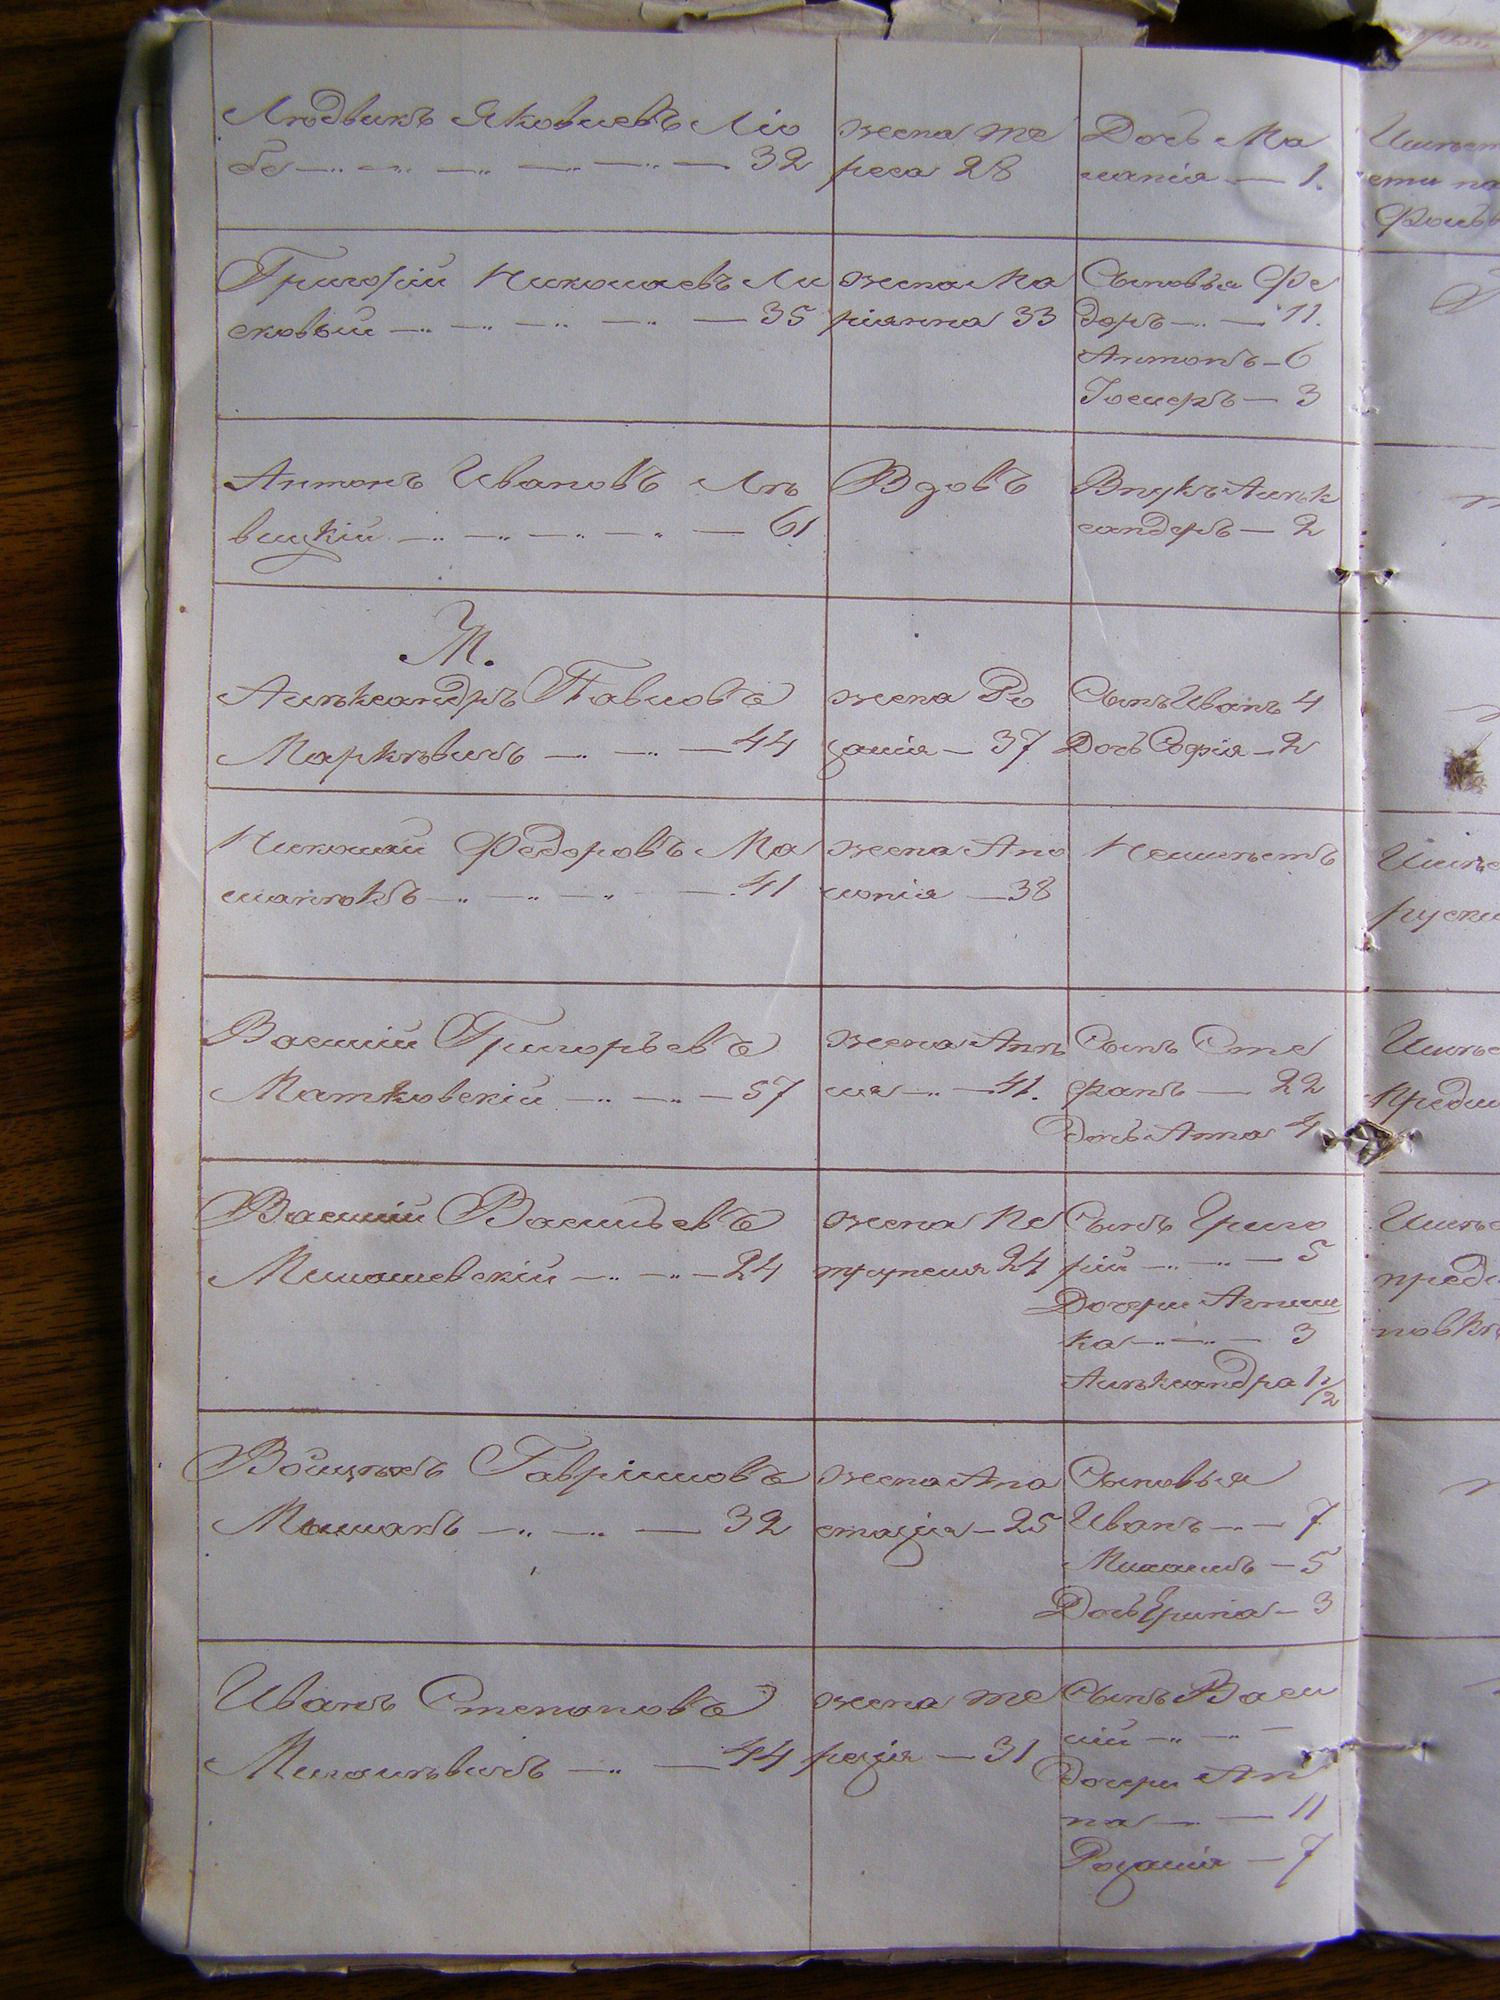 Людвикъ Яковлевъ Ліо
бе 32
жена Те
реса 28
Дочь Ма
ланія 1.
Григорій Николаевъ Ли
сковый 35
жена Ма
ріанна 33
Сыновья Фе
доръ 11.
Антонъ 6
Іосифъ 3
Антонъ Ивановъ Лѣ
вицкій 61
Вдовъ
Внукъ Алѣк
сандеръ 2
М.
Алѣксандръ Павловъ
Маркѣвичъ 44
жена Ро
залія 37
Сынъ Иванъ 4
Дочь Софія 2
Николай Федоровъ Ма
ланюкъ 41
жена Апо
лонія 38
Неимѣетъ
Василій Григорьевъ
Матковскій 57
жена Анѣ
ля 41.
Сынъ Сте
фанъ 22
Дочь Анна 4
Василій Васильевъ
Милашевскій 24
жена Пе
трунеля 24
Сынъ Григо
рій 5
Дочери Агниш
ка 3
Алѣксандра 1 1/2
Войцѣхъ Гавріиловъ
32
жена Ана
стазія 25
Сыновья
Иванъ 7
Михаилъ 5
Дочь 3
Иванъ Степановъ
Михалѣвичъ 44
жена Те
резія 31
Сынъ Васи
лій
Дочери Ан
на 11
Розалія 7